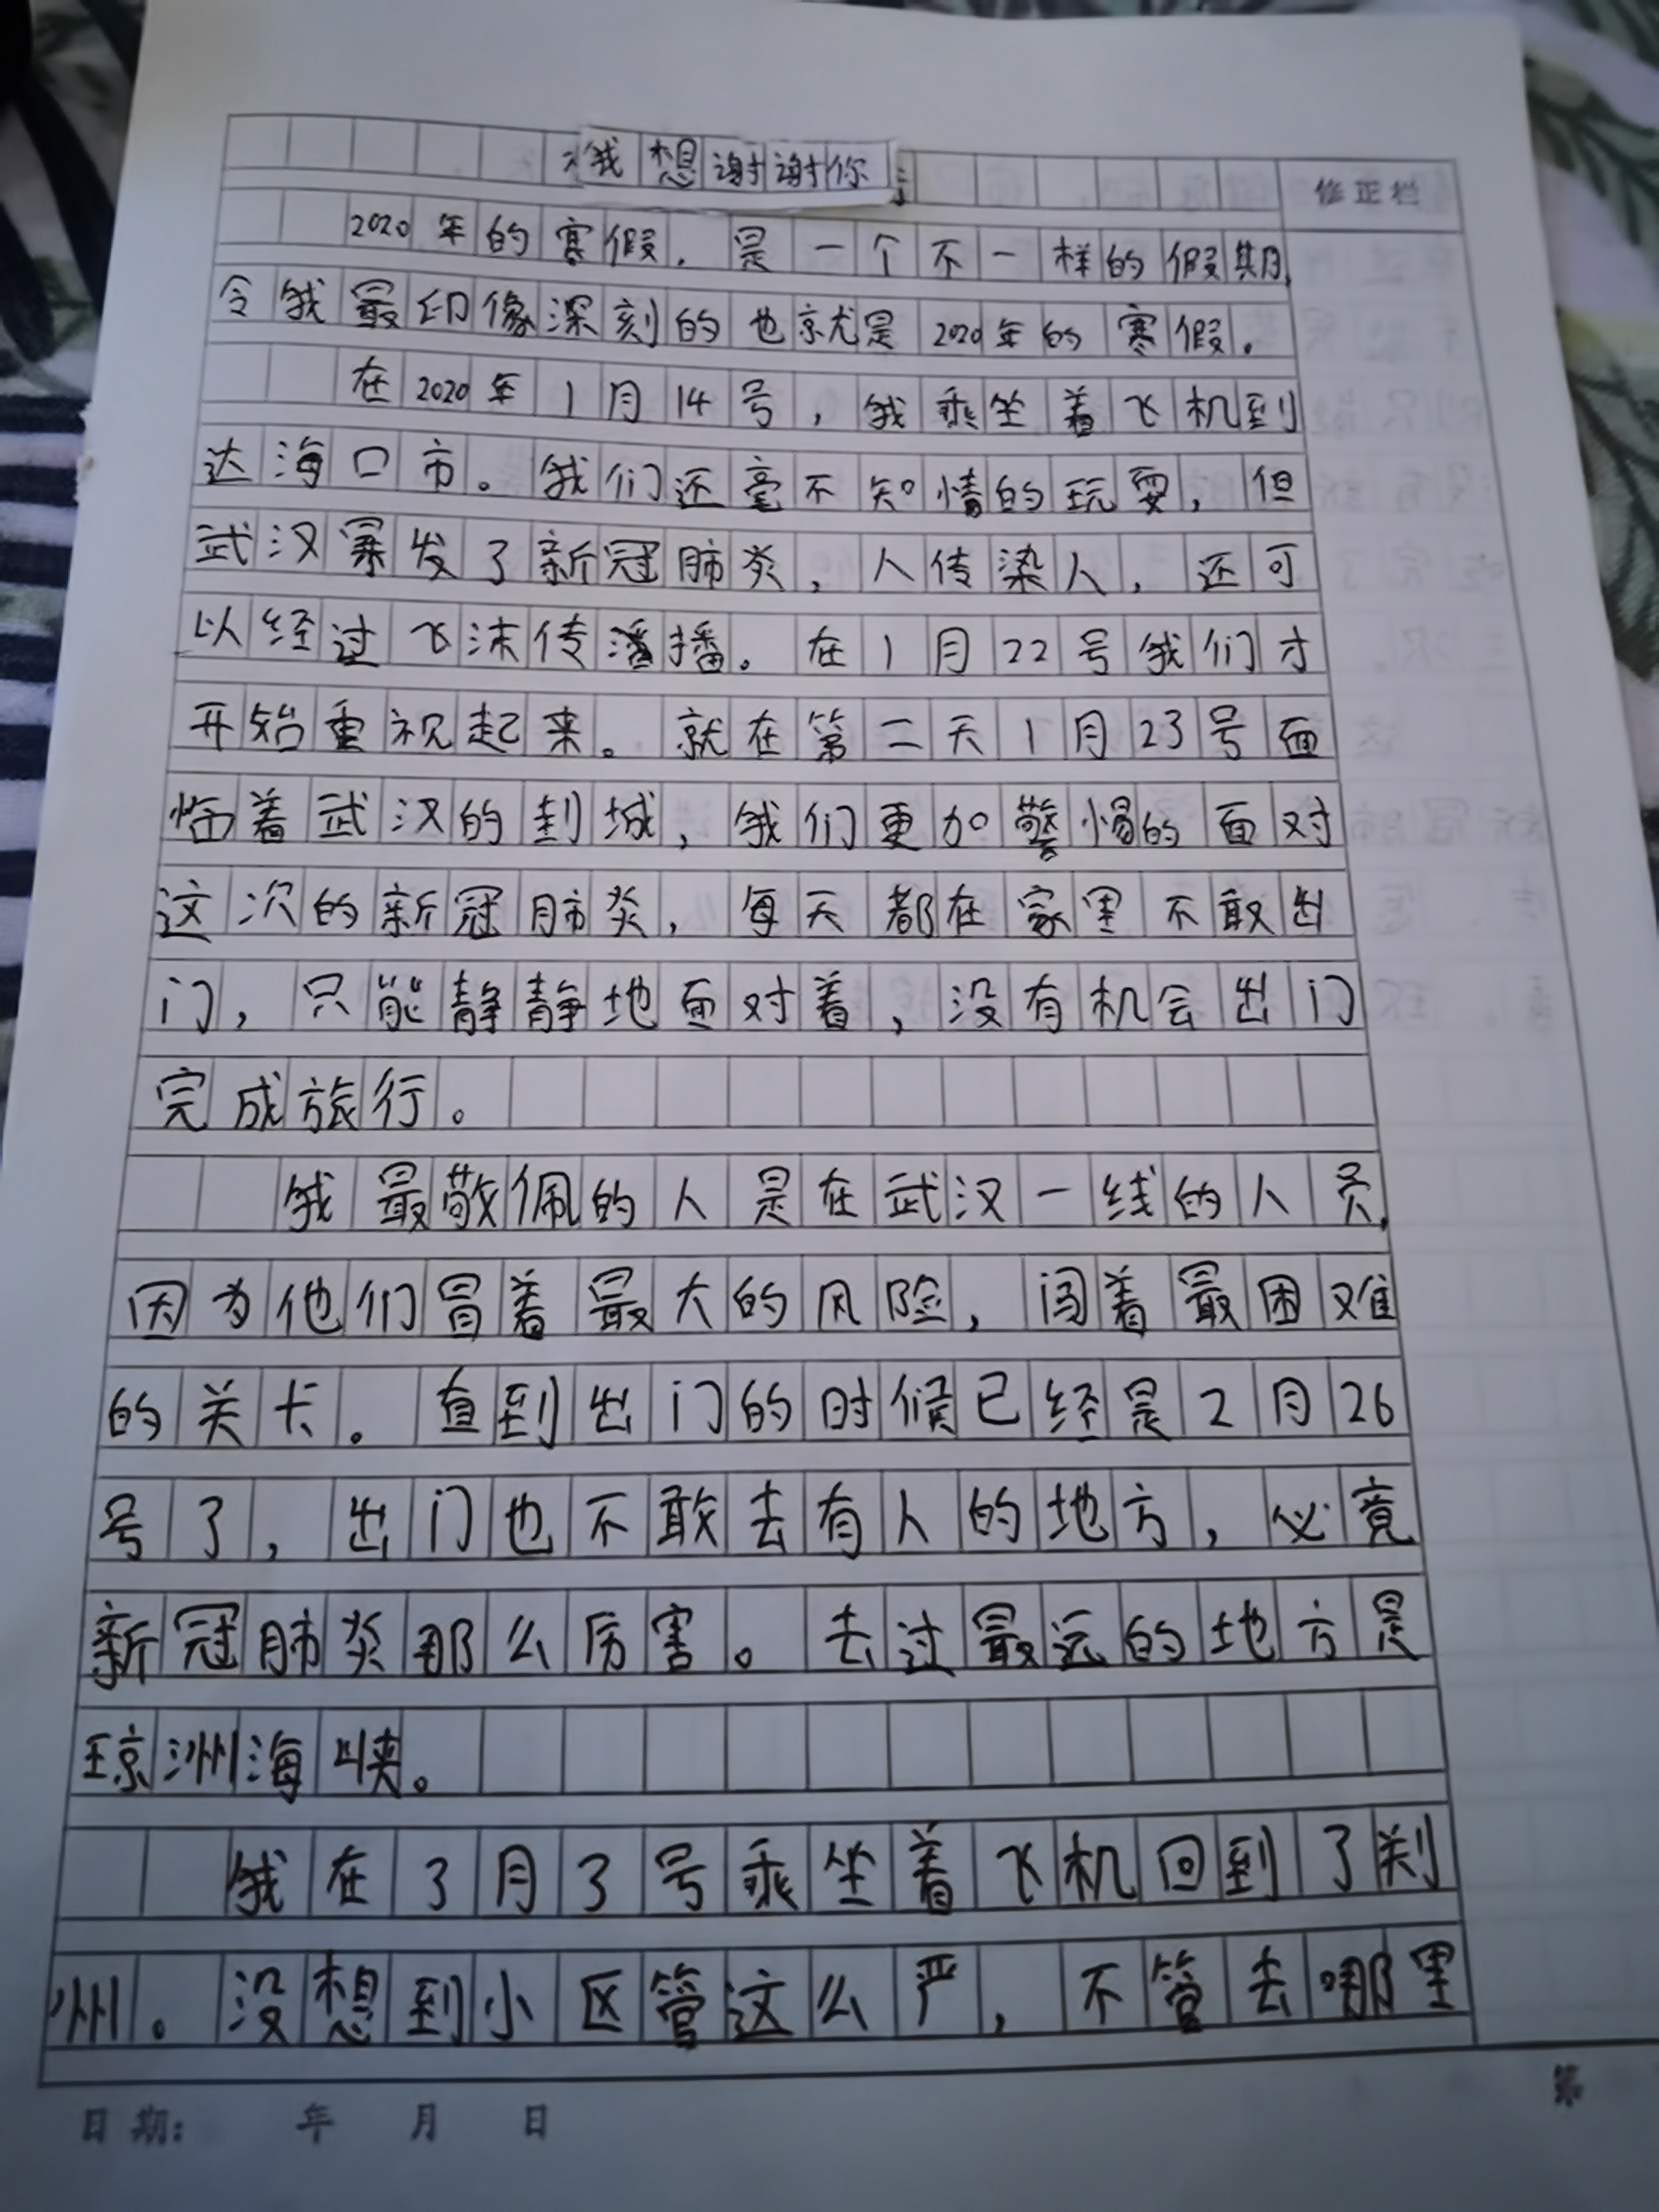 我想谢谢你
修正栏
2020年的寒假，是一个不一样的假期，
令我最印像深刻的也就是2020年的寒假。
在2020年1月14号，我乘坐着飞机到
达海口市。我们还毫不知情的玩耍，但
武汉暴发了新冠肺炎，人传染人，还可
以经过飞沫传播。在1月22号我们才
开始重视起来。就在第二天1月23号面
临着武汉的封城，我们更加警惕的面对
这次的新冠肺炎，每天都在家里不敢出
门，只能静静地面对着，没有机会出门
完成旅行。
我最敬佩的人是在武汉一线的人员，
因为他们冒着最大的风险，闯着最困难
的关卡。直到出门的时候已经是2月26
号了，出门也不敢去有人的地方，必竟
新冠肺炎那么厉害。去过最远的地方是
琼洲海峡。
我在3月3号乘坐着飞机回到了郑
州。没想到小区管这么严，不管去哪里
日期： 年 月 日
第